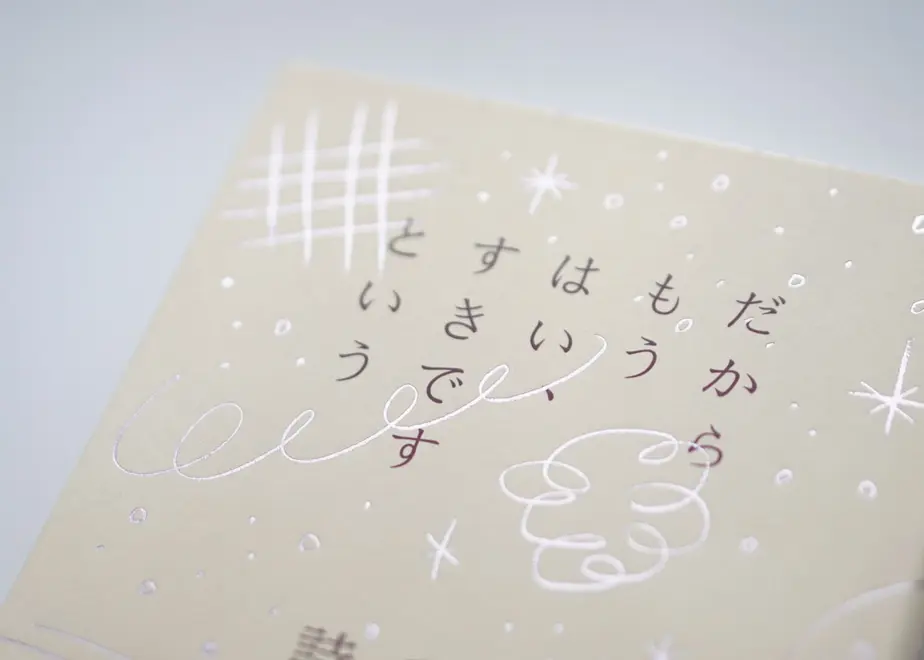 だから
もう
はい、
すきです
という